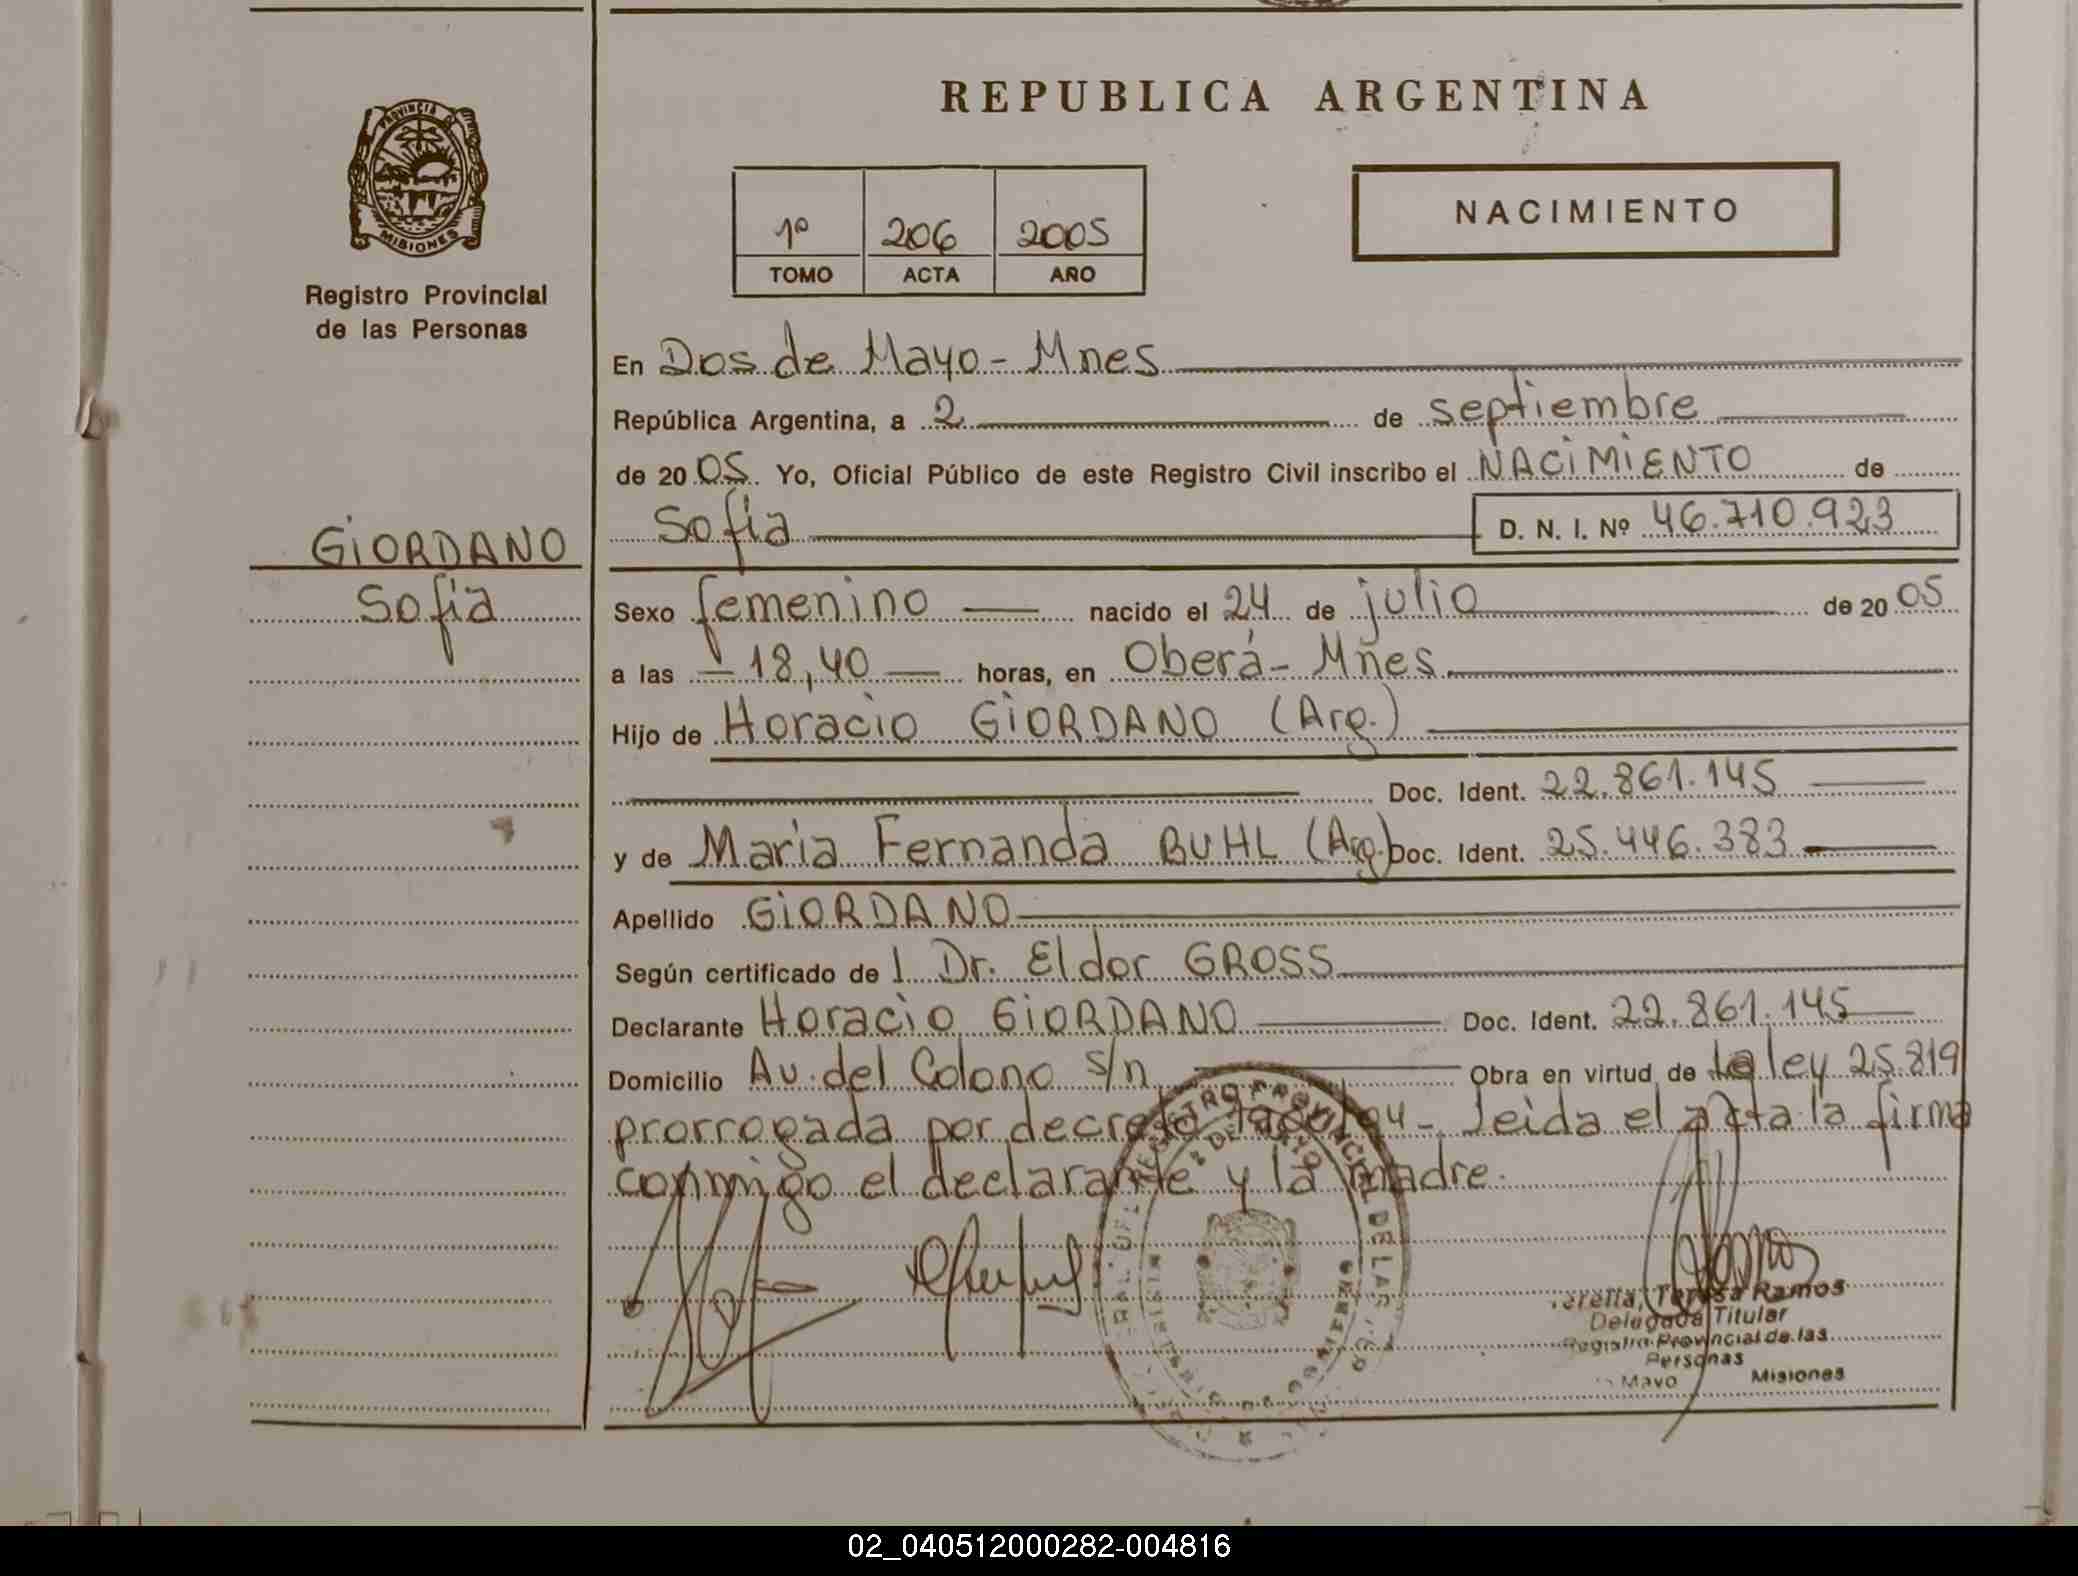 REPUBLICA ARGENTINA
PROVINCIA DE
MISIONES
Registro Provincial
de las Personas
1º 206 2005
TOMO ACTA AÑO
NACIMIENTO
En Dos de Mayo - Mnes
República Argentina, a 2 de septiembre
de 2005 Yo, Oficial Público de este Registro Civil inscribo el NACIMIENTO de
Sofia D. N. I. Nº 46.710.923
GIORDANO
Sofia
Sexo femenino nacido el 24 de julio de 2005
a las 18,40 horas, en Oberá - Mñes
Hijo de Horacio GIORDANO (Arg.)
Doc. Ident. 22.861.145
y de Maria Fernanda BUHL (Arg.) Doc. Ident. 25.446.383
Apellido GIORDANO
Según certificado de l Dr. Eldor GROSS
Declarante Horacio GIORDANO Doc. Ident. 22.861.145
Domicilio Av. del Colono s/n Obra en virtud de la ley 25.819
prorrogada por decreto leida el acta la firma
conmigo el declarante y la madre.
REGISTRO PROVINCIAL DE LAS
2 DE MAYO
Teresa Ramos
Delegada Titular
Registro Provincial de las
Personas
Mayo Misiones
02_040512000282-004816